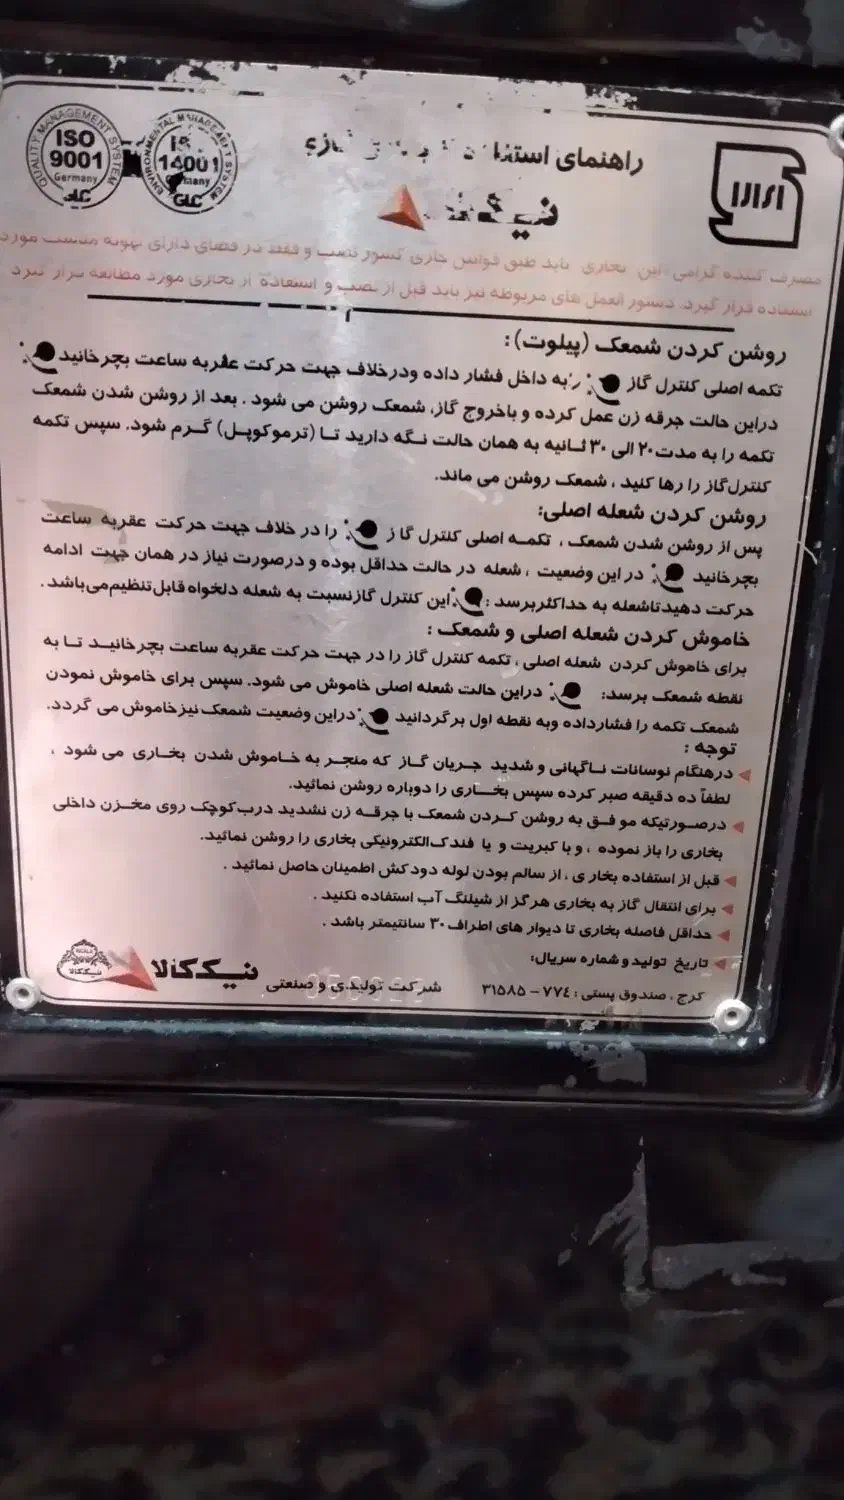 QUALITY MANAGEMENT SYSTEM
ISO 9001
Germany
GLC
ENVIRONMENTAL SYSTEM
14001
GLC
راهنمای استفاده
نیک
مصرف کننده گرامی این بخاری باید طبق قوانین جاری کشور نصب و فقط در فضای دارای تهویه مناسب مورد
استفاده قرار گیرد. دستور العمل های مربوطه نیز باید قبل از نصب و استفاده از بخاری مورد مطالعه قرار گیرد
روشن کردن شمعک (پیلوت):
تکمه اصلی کنترل گاز را به داخل فشار داده ودرخلاف جهت حرکت عقربه ساعت بچرخانید
دراین حالت جرقه زن عمل کرده و باخروج گاز، شمعک روشن می شود . بعد از روشن شدن شمعک
تکمه را به مدت ۲۰ الی ۳۰ ثانیه به همان حالت نگه دارید تا (ترموکوپل) گرم شود. سپس تکمه
کنترل گاز را رها کنید ، شمعک روشن می ماند.
روشن کردن شعله اصلی:
پس از روشن شدن شمعک ، تکمه اصلی کنترل گاز را در خلاف جهت حرکت عقربه ساعت
بچرخانید در این وضعیت ، شعله در حالت حداقل بوده و درصورت نیاز در همان جهت ادامه
حرکت دهیدتاشعله به حداکثربرسد : این کنترل گازنسبت به شعله دلخواه قابل تنظیم می باشد .
خاموش کردن شعله اصلی و شمعک :
برای خاموش کردن شعله اصلی ، تکمه کنترل گاز را در جهت حرکت عقربه ساعت بچرخانید تا به
نقطه شمعک برسد: دراین حالت شعله اصلی خاموش می شود. سپس برای خاموش نمودن
شمعک تکمه را فشارداده وبه نقطه اول برگردانید دراین وضعیت شمعک نیزخاموش می گردد.
توجه :
درهنگام نوسانات ناگهانی و شدید جریان گاز که منجر به خاموش شدن بخاری می شود ،
لطفاً ده دقیقه صبر کرده سپس بخاری را دوباره روشن نمائید.
درصورتیکه موفق به روشن کردن شمعک با جرقه زن نشدید درب کوچک روی مخزن داخلی
بخاری را باز نموده ، و با کبریت و یا فندک الکترونیکی بخاری را روشن نمائید.
قبل از استفاده بخاری ، از سالم بودن لوله دودکش اطمینان حاصل نمائید .
برای انتقال گاز به بخاری هرگز از شیلنگ آب استفاده نکنید .
حداقل فاصله بخاری تا دیوار های اطراف ۳۰ سانتیمتر باشد .
تاریخ تولید و شماره سریال:
کرج ، صندوق پستی : ۷۷٤ – ۳۱۵۸۵ شرکت تولیدی و صنعتی نیک کالا
NICALA
نیک کالا